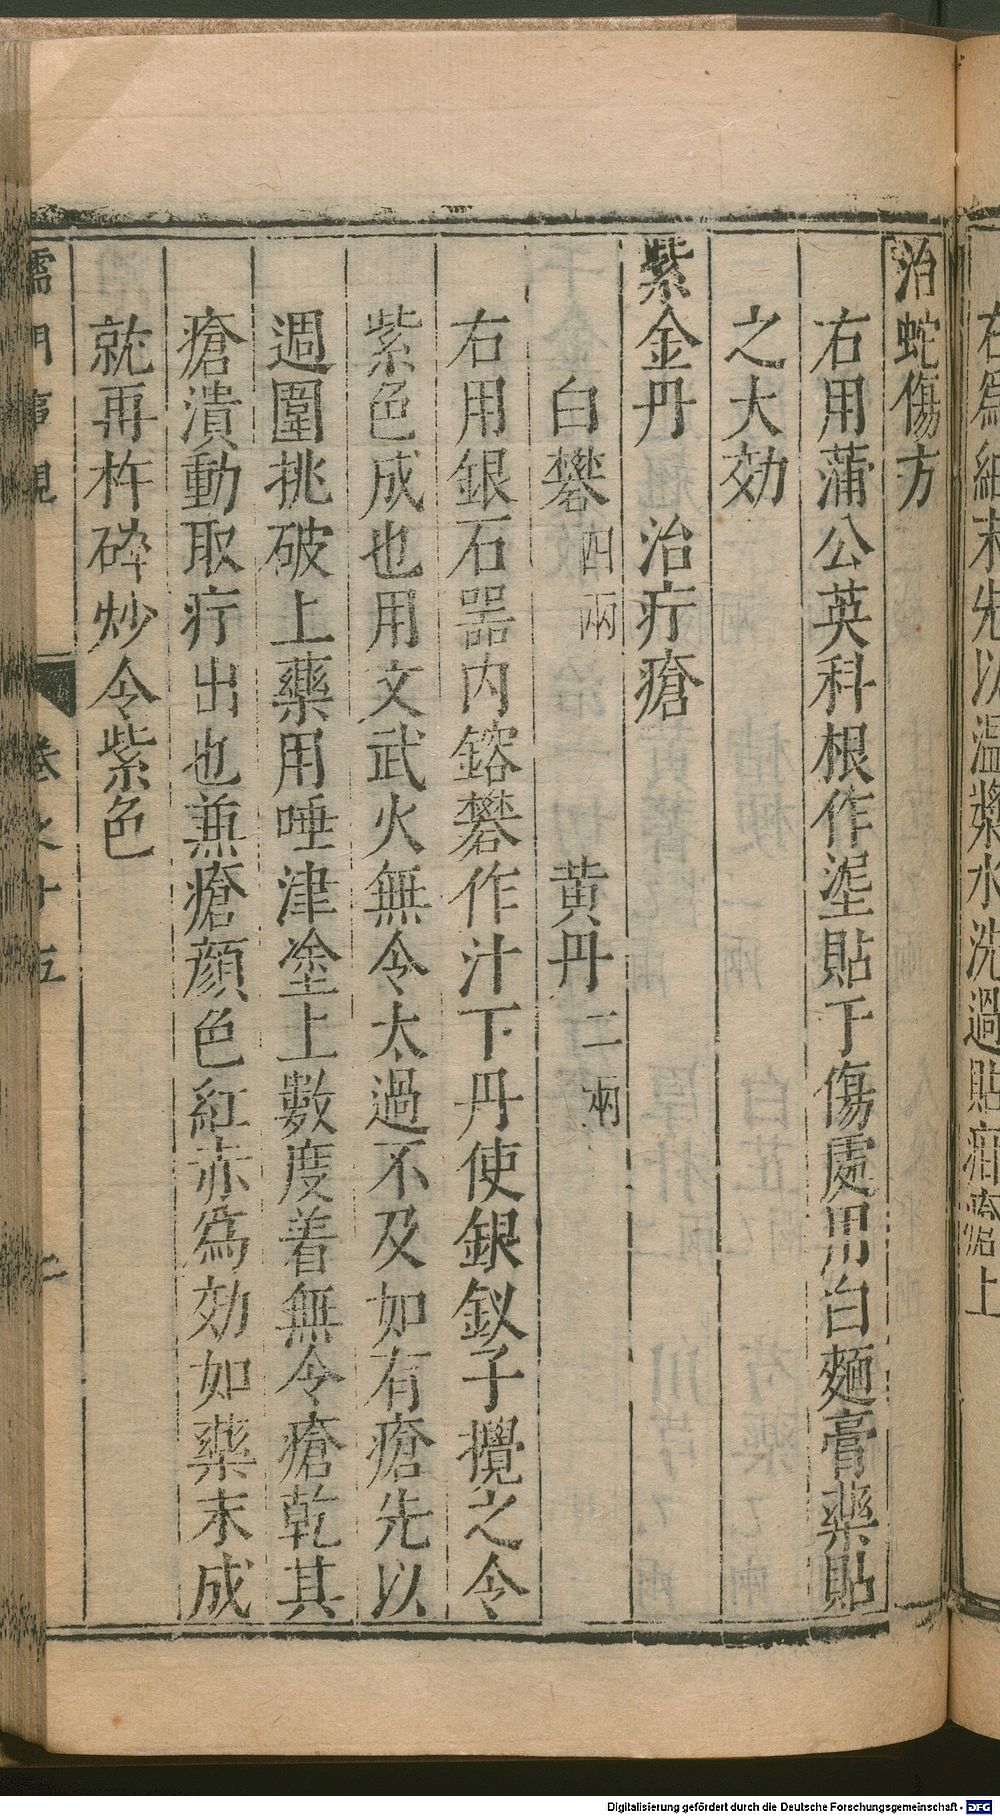 右爲細末先以溫漿水洗過貼疳瘡上
治蛇傷方
右用蒲公英科根作埿貼于傷處用白麵膏藥貼
之大効
紫金丹　治疔瘡
白礬四兩　黄丹二兩
右用銀石器内鎔礬作汁下丹使銀釵子攪之令
紫色成也用文武火無令太過不及如有瘡先以
週圍挑破上藥用唾津塗上數度着無令瘡乾其
瘡潰動取疔出也兼瘡顔色紅赤爲効如藥末成
就再杵碎炒令紫色
儒門事親　卷之十五
Digitalisierung gefördert durch die Deutsche Forschungsgemeinschaft - DFG